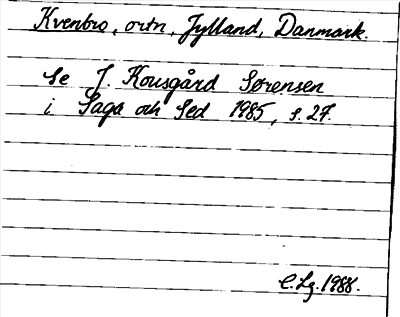 Kvenbro, ortn, Jylland, Danmark.
Se J. Kousgård Sørensen
i Saga och Sed 1985, s. 27.
C.Lg. 1988.